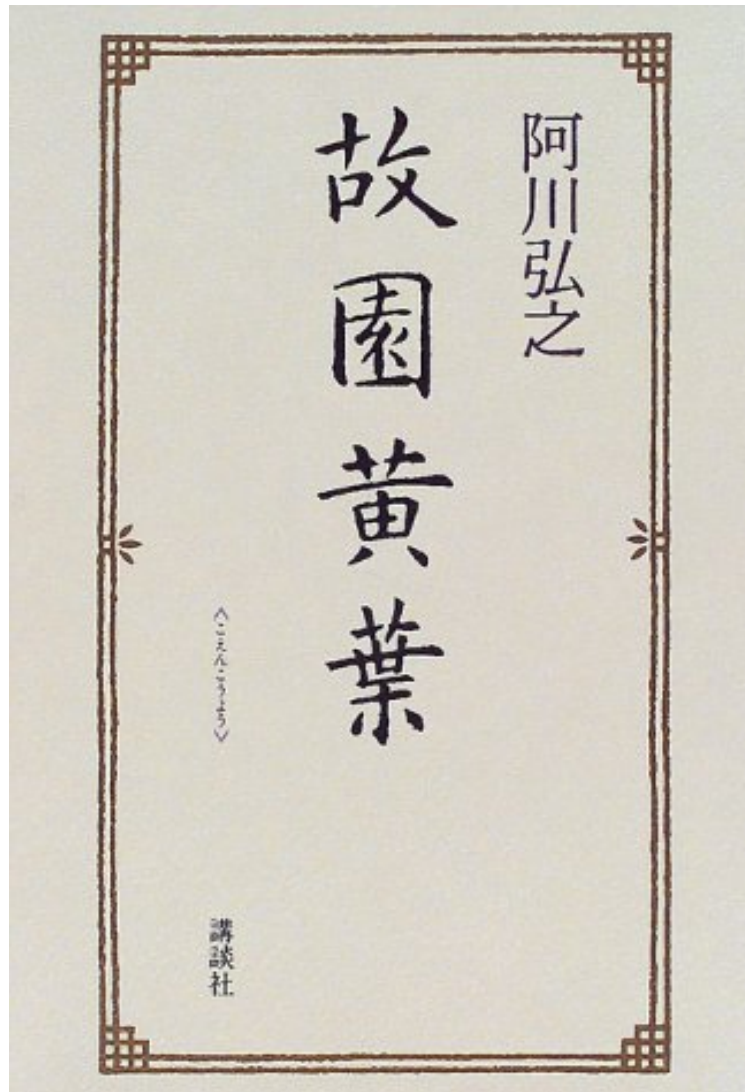 阿川弘之
故園黄葉
〈こえんこうよう〉
講談社